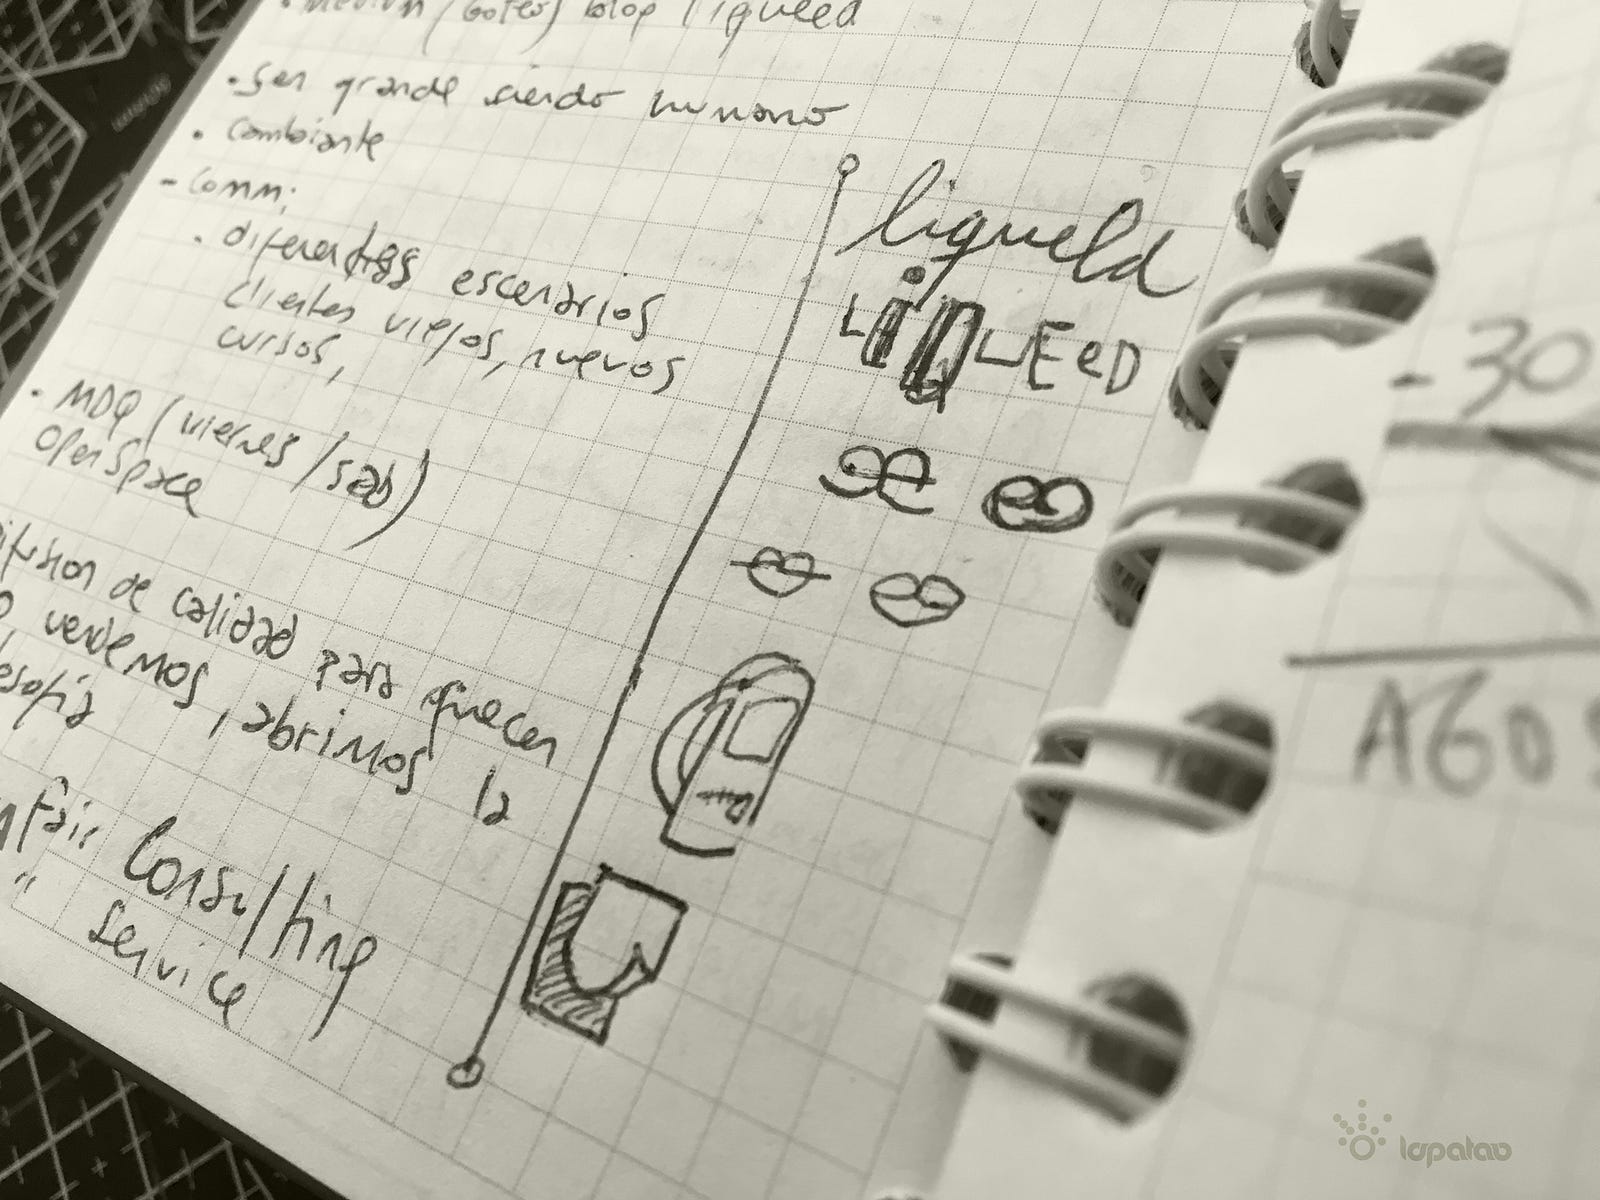 . Medium / (goteo) blog liqueed
. Ser grande siendo humano
. cambiante
- Comm:
. diferentes escenarios
clientes viejos, nuevos
cursos,
. MDQ (viernes / sab)
OpenSpace
ifusion de calidad para que cen
vendemos, abrimos la
esofia
fair Consulting
" service
liqueld
LiQUEeD
- 30
AGOS
lapatao